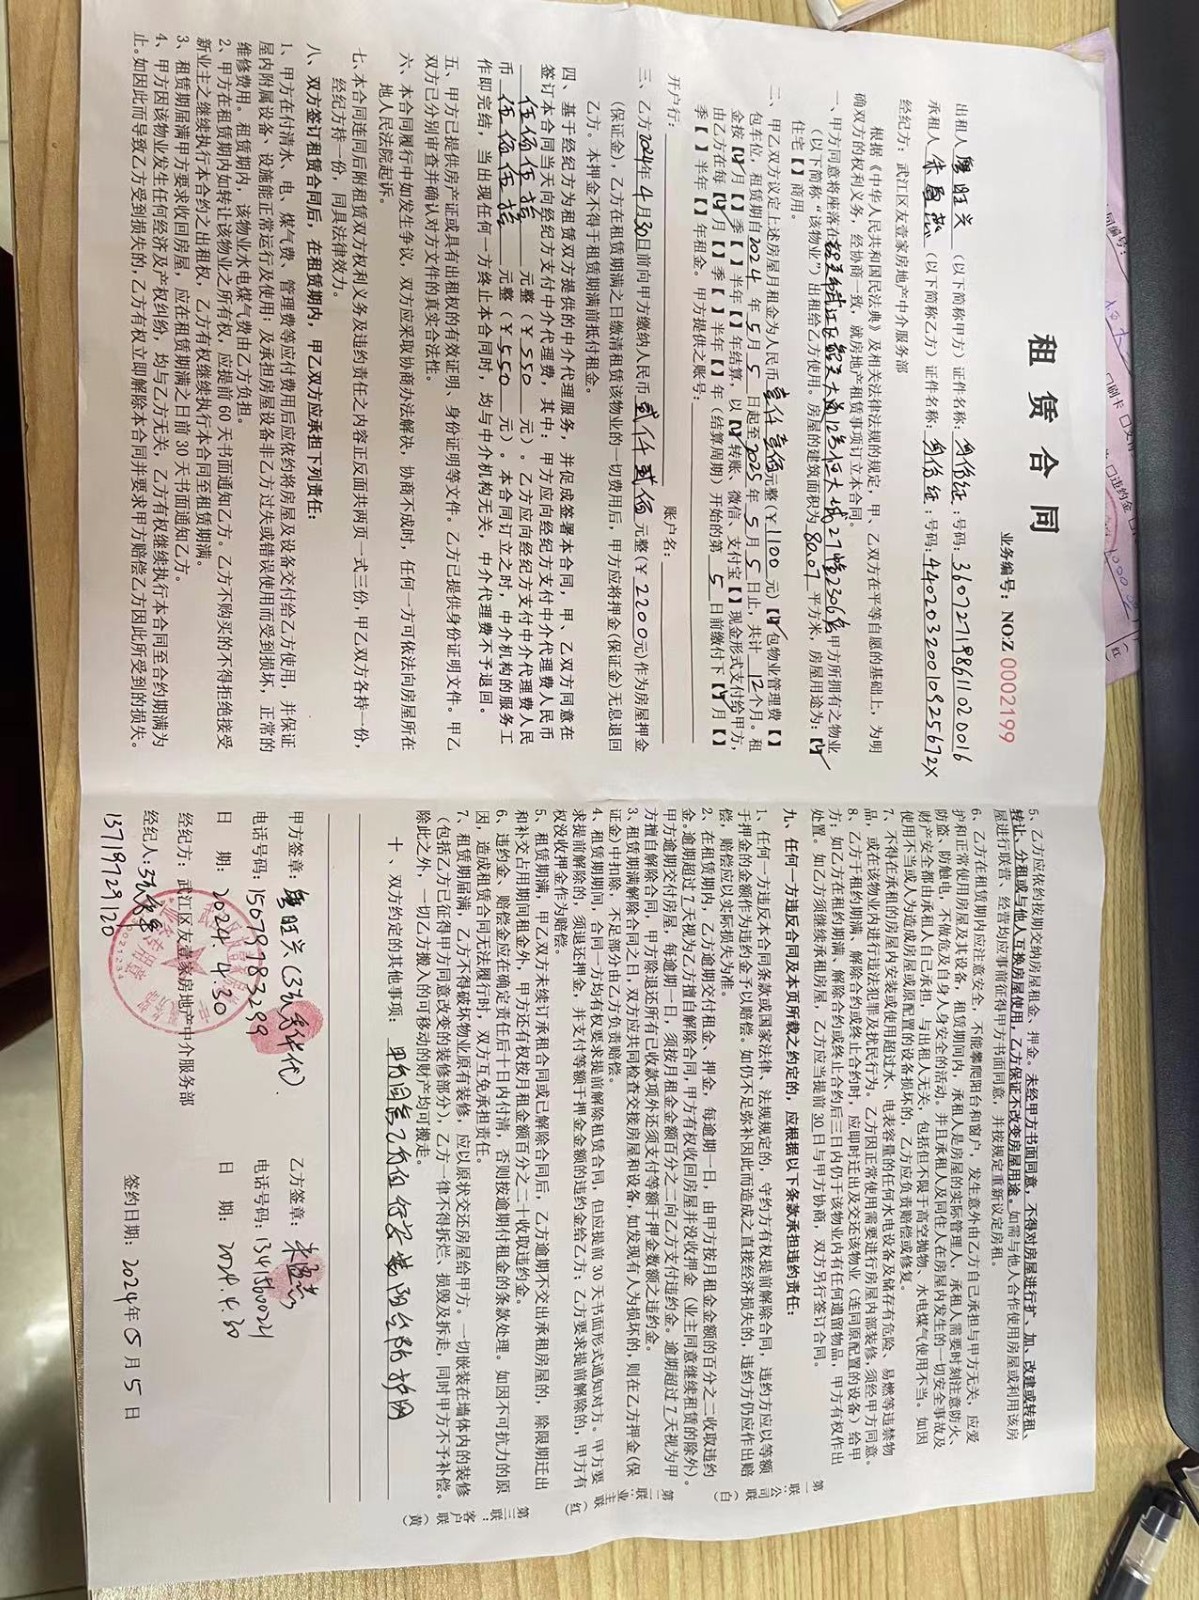 租 赁 合 同
业务编号：NO:Z 0002199
出租人 廖旺兴 （以下简称甲方）证件名称：身份证：号码：360727198611020016
承租人 （以下简称乙方）证件名称：身份证：号码：44020320010925672X
经纪方：武江区友壹家房地产中介服务部
根据《中华人民共和国民法典》及相关法律法规的规定，甲、乙双方在平等自愿的基础上，为明
确双方的权利义务，经协商一致，就房地产租赁事项订立本合同。
一、甲方同意将座落在韶关市武江区 12号恒大城27幢2306房甲方所拥有之物业
（以下简称“该物业”）出租给乙方使用。房屋的建筑面积为80.07平方米，房屋用途为：【✓】
住宅【 】商用。
二、甲乙双方议定上述房屋月租金为人民币壹仟壹佰元整（￥1100元）【✓】包物业管理费【 】
包车位，租赁期自2024年5月5日起至2025年5月5日止，共计12个月。租
金按【✓】月【 】季【 】半年【 】年结算，以【✓】转账、微信、支付宝【 】现金形式支付给甲方，
由乙方在每【✓】月【 】季【 】半年【 】年（结算周期）开始的第5日前缴付下【✓】月【 】
季【 】半年【 】年租金。甲方提供之账号：
开户行： 账户名：
三、乙方2024年4月30日前向甲方缴纳人民币贰仟贰佰元整（￥2200元）作为房屋押金
（保证金），乙方在租赁期满之日缴清租赁该物业的一切费用后，甲方应将押金(保证金)无息退回
乙方。本押金不得于租赁期满前抵付租金。
四、基于经纪方为租赁双方提供的中介代理服务，并促成签署本合同，甲、乙双方同意在
签订本合同当天向经纪方支付中介代理费，其中：甲方应向经纪方支付中介代理费人民币
伍佰伍拾元整（￥550元）。乙方应向经纪方支付中介代理费人民
币伍佰伍拾元整（￥550元）。本合同订立之时，中介机构的服务工
作即完结，当出现任何一方终止本合同时，均与中介机构无关，中介代理费不予退回。
五、甲方已提供房产证或具有出租权的有效证明、身份证明等文件。乙方已提供身份证明文件。甲乙
双方已分别审查并确认对方文件的真实合法性。
六、本合同履行中如发生争议，双方应采取协商办法解决，协商不成时，任何一方可依法向房屋所在
地人民法院起诉。
七、本合同连同后附租赁双方权利义务及违约责任之内容正反面共两页一式三份，甲乙双方各持一份，
经纪方持一份，同具法律效力。
八、双方签订租赁合同后，在租赁期内，甲乙双方应承担下列责任：
1、甲方在付清水、电、煤气费、管理费等应付费用后应依约将房屋及设备交付给乙方使用，并保证
屋内附属设备、设施能正常运行及使用；及承担房屋设备非乙方过失或错误使用而受到损坏，正常的
维修费用。租赁期内，该物业水电煤气费由乙方负担。
2、甲方在租赁期内如转让该物业之所有权，应提前60天书面通知乙方。乙方不购买的不得拒绝接受
新业主之继续执行本合约之出租权，乙方有权继续执行本合同至租赁期满。
3、租赁期届满甲方要求收回房屋，应在租赁期满之日前30天书面通知乙方。
4、甲方因该物业发生任何经济及产权纠纷，均与乙方无关，乙方有权继续执行本合同至合约期满为
止。如因此而导致乙方受到损失的，乙方有权立即解除本合同并要求甲方赔偿乙方因此所受到的损失。
5、乙方应依约按期交纳房屋租金、押金。未经甲方书面同意，不得对房屋进行扩、加、改建或转租、
转让、分租或与他人互换房屋使用，乙方保证不改变房屋用途。如需与他人合作使用房屋或利用该房
屋进行联营、经营均应事前征得甲方书面同意，并按规定重新议定房租。
6、乙方在租赁期内应注意安全，不能攀爬阳台和窗户，发生意外由乙方自己承担与甲方无关，应爱
护和正常使用房屋及其设备，租赁期间内，承租人是房屋的实际管理人，承租人需要时刻注意防火、
防盗、防触电，不做危及自身人身安全的活动。并且承租人及同住人在房屋内发生的一切安全事故及
财产安全都由承租人自己承担，与出租人无关，包括但不限于高空抛物、水电煤气使用不当。如因
使用不当或人为造成房屋或原配置的设备损坏的，乙方应负责赔偿或修复。
7、不得在承租的房屋内安装或使用超过水、电表容量的任何水电设备及储存有危险、易燃等违禁物
品，或在该物业内进行违法犯罪及扰民行为。乙方因正常使用需要进行房屋内部装修，须经甲方同意。
8、乙方于租约期满、解除合约或终止合约时，应即时迁出及交还该物业（连同原配置的设备）给甲
方；如乙方在租约期满、解除合约或终止合约后三日内仍于该物业内有任何遗留物品，甲方有权作出
处置。如乙方须继续承租房屋，乙方应当提前30日与甲方协商，双方另行签订合同。
九、任何一方违反合同及本页所载之约定的，应根据以下条款承担违约责任：
1、任何一方违反本合同条款或国家法律、法规规定的，守约方有权提前解除合同，违约方应以等额
于押金的金额作为违约金予以赔偿。如仍不足弥补因此而造成之直接经济损失的，违约方仍应作出赔
偿，赔偿应以实际损失为准。
2、在租赁期内，乙方逾期交付租金、押金，每逾期一日，由甲方按月租金金额的百分之二收取违约
金。逾期超过7天视为乙方擅自解除合同，甲方有权收回房屋并没收押金（业主同意继续租赁的除外）。
甲方逾期交付房屋，每逾期一日，须按月租金金额百分之二向乙方支付违约金。逾期超过7天视为甲
方擅自解除合同，甲方除退还所有已收款项外还须支付等额于押金数额之违约金。
3、租赁期满解除合同之日，双方应共同检查交接房屋和设备，如发现有人为损坏的，则在乙方押金（保
证金）中扣除，不足部分由乙方负责赔偿。
4、租赁期期间，合同一方均有权要求提前解除租赁合同，但应提前30天书面形式通知对方。甲方要
求提前解除的，须退还押金，并支付等额于押金金额的违约金给乙方；乙方要求提前解除的，甲方有
权没收押金作为赔偿。
5、租赁期满，甲乙双方未续订承租合同或已解除合同后，乙方逾期不交出承租房屋的，除限期迁出
和补交占用期间租金外，甲方还有权按月租金额百分之二十收取违约金。
6、违约金、赔偿金应在确定责任后十日内付清，否则按逾期付租金的条款处理。如因不可抗力的原
因，造成租赁合同无法履行时，双方互免承担责任。
7、租赁期届满，乙方不得破坏物业原有装修，应以原状交还房屋给甲方。一切嵌装在墙体内的装修
（包括乙方已征得甲方同意改变的装修部分），乙方一律不得拆烂、损毁及拆走，同时甲方不予补偿。
除此之外，一切乙方搬入的可移动的财产均可搬走。
十、双方约定的其他事项：
甲方签章：廖旺兴 乙方签章：
电话号码：15679783299 电话号码：13415600021
日 期：2024.4.30 日 期：2024.4.30
经纪方：武江区友壹家房地产中介服务部
经纪人： 签约日期：2024年05月5日
13719729120
第一联：公司（白）
第二联：业主（红）
第三联：客户（黄）